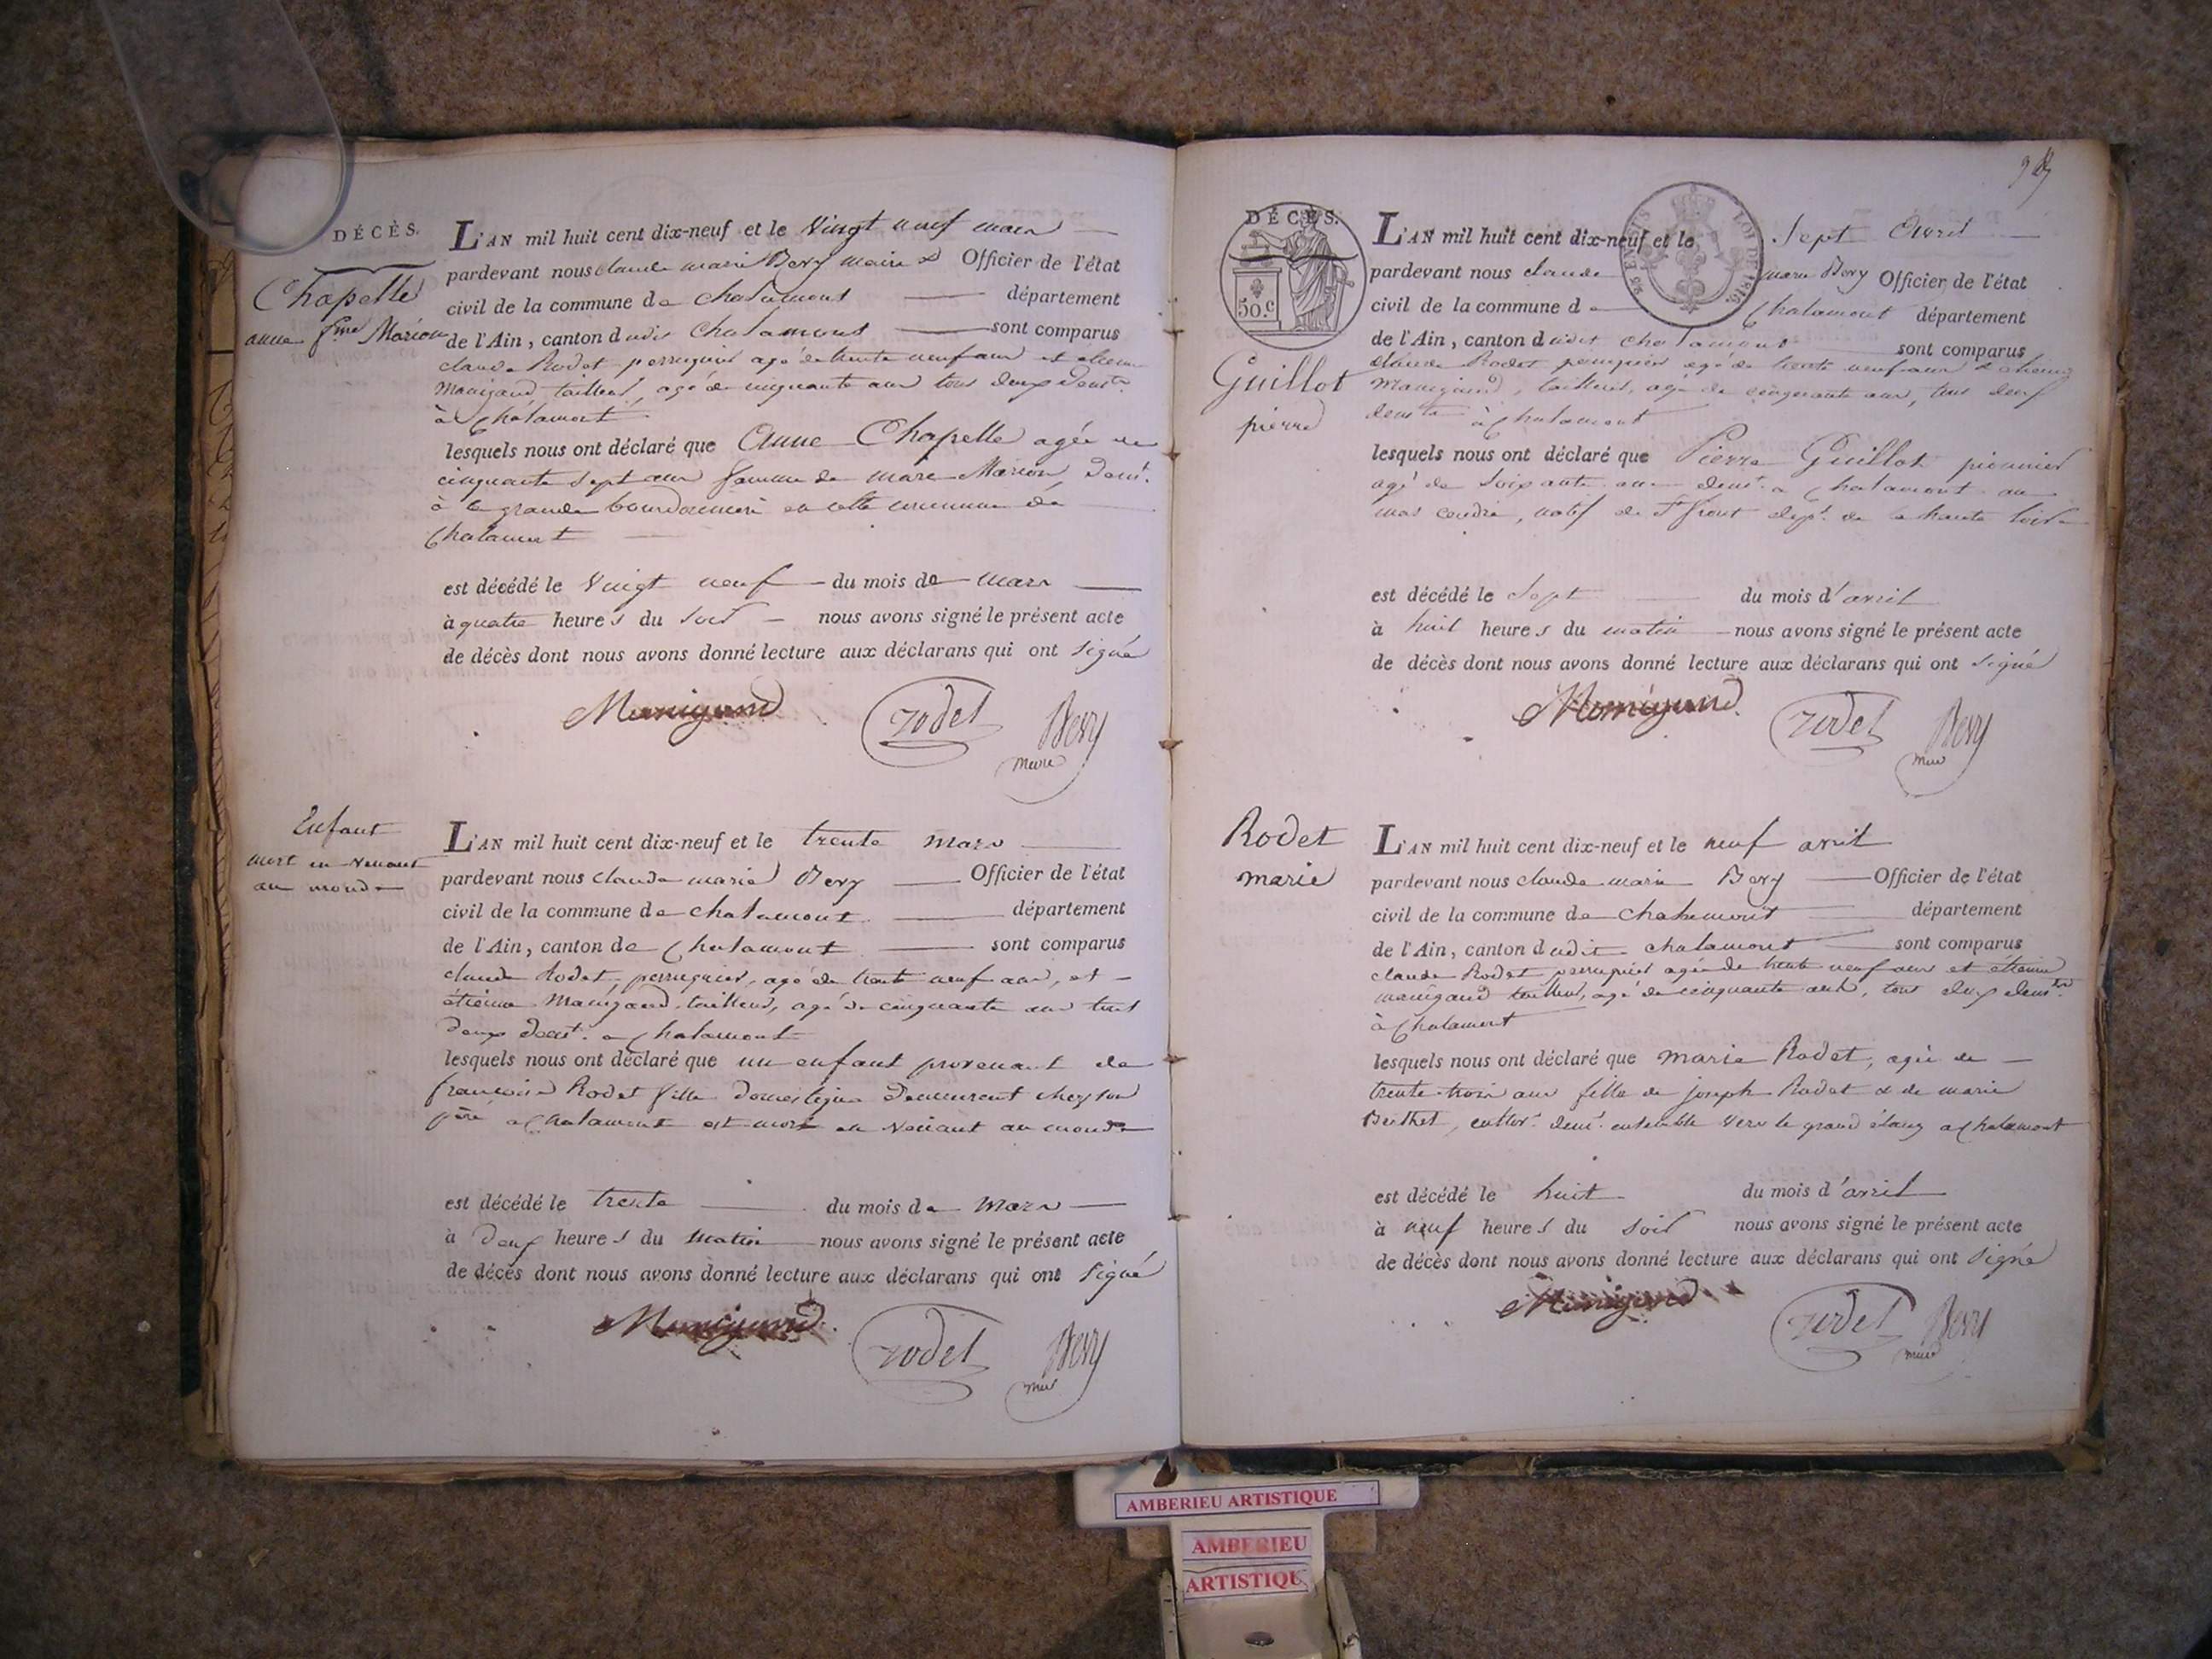 DÉCÈS.
Chapelle
anne fme Marion
L'AN mil huit cent dix-neuf et le Vingt neuf mars
pardevant nous claude marie Bery maire & Officier de l'état
civil de la commune de chalamont département
de l'Ain, canton dudit Chalamont sont comparus
claude Rodet perruquier agé de trente neuf ans et etienne
Manigand, tailleur, agé de cinquante ans tous deux demts
à Chalamont
lesquels nous ont déclaré que Anne Chapelle agée de
cinquante sept ans femme de marc Marion, demt.
à la grande bourdonnière en cette commune de
Chalamont
est décédé le Vingt neuf du mois de mars
à quatre heures du soir nous avons signé le présent acte
de décès dont nous avons donné lecture aux déclarans qui ont signé
Manigand rodet Bery
Maire
Enfant
mort en venant
au monde
L'AN mil huit cent dix-neuf et le trente mars
pardevant nous claude marie Bery Officier de l'état
civil de la commune de chalamont département
de l'Ain, canton de Chalamont sont comparus
claude Rodet, perruquier, agé de trente neuf ans, et
étienne Manigand tailleur, agé de cinquante ans tous
deux demt. a Chalamont
lesquels nous ont déclaré que un enfant provenant de
françoise Rodet fille domestique demeurent chez son
père a Chalamont est mort en venant au monde
est décédé le trente du mois de Mars
à deux heures du matin nous avons signé le présent acte
de décès dont nous avons donné lecture aux déclarans qui ont signé
Manigand rodet Bery
Maire
DÉCÈS.
50.c
LOI DE 1816
Guillot
pierre
L'AN mil huit cent dix-neuf et le Sept Avril
pardevant nous claude marie Bery Officier de l'état
civil de la commune de Chalamont département
de l'Ain, canton dudit chalamont sont comparus
claude Rodet perruquier agé de trente neuf ans & etienne
Manigand, tailleur, agé de cinquante ans, tous deux
demts à Chalamont
lesquels nous ont déclaré que Pierre Guillot pionnier
agé de soixante ans demt. a Chalamont au
mas coudre, natif de St front dept. de la haute loire
est décédé le Sept du mois d'avril
à huit heures du matin nous avons signé le présent acte
de décès dont nous avons donné lecture aux déclarans qui ont signé
Manigand rodet Bery
Maire
Rodet
marie
L'AN mil huit cent dix-neuf et le neuf avril
pardevant nous claude marie Bery Officier de l'état
civil de la commune de Chalamont département
de l'Ain, canton dudit chalamont sont comparus
claude Rodet perruquier agé de trente neuf ans et étienne
manigand tailleur, agé de cinquante ans, tous deux demts
à Chalamont
lesquels nous ont déclaré que marie Rodet, agée de
trente-trois ans fille de joseph Rodet & de marie
Berthet, cultivr. demt. ensemble vers le grand étang a Chalamont
est décédé le huit du mois d'avril
à neuf heures du soir nous avons signé le présent acte
de décès dont nous avons donné lecture aux déclarans qui ont signé
Manigand rodet Bery
maire
AMBERIEU ARTISTIQUE
AMBERIEU
ARTISTIQU